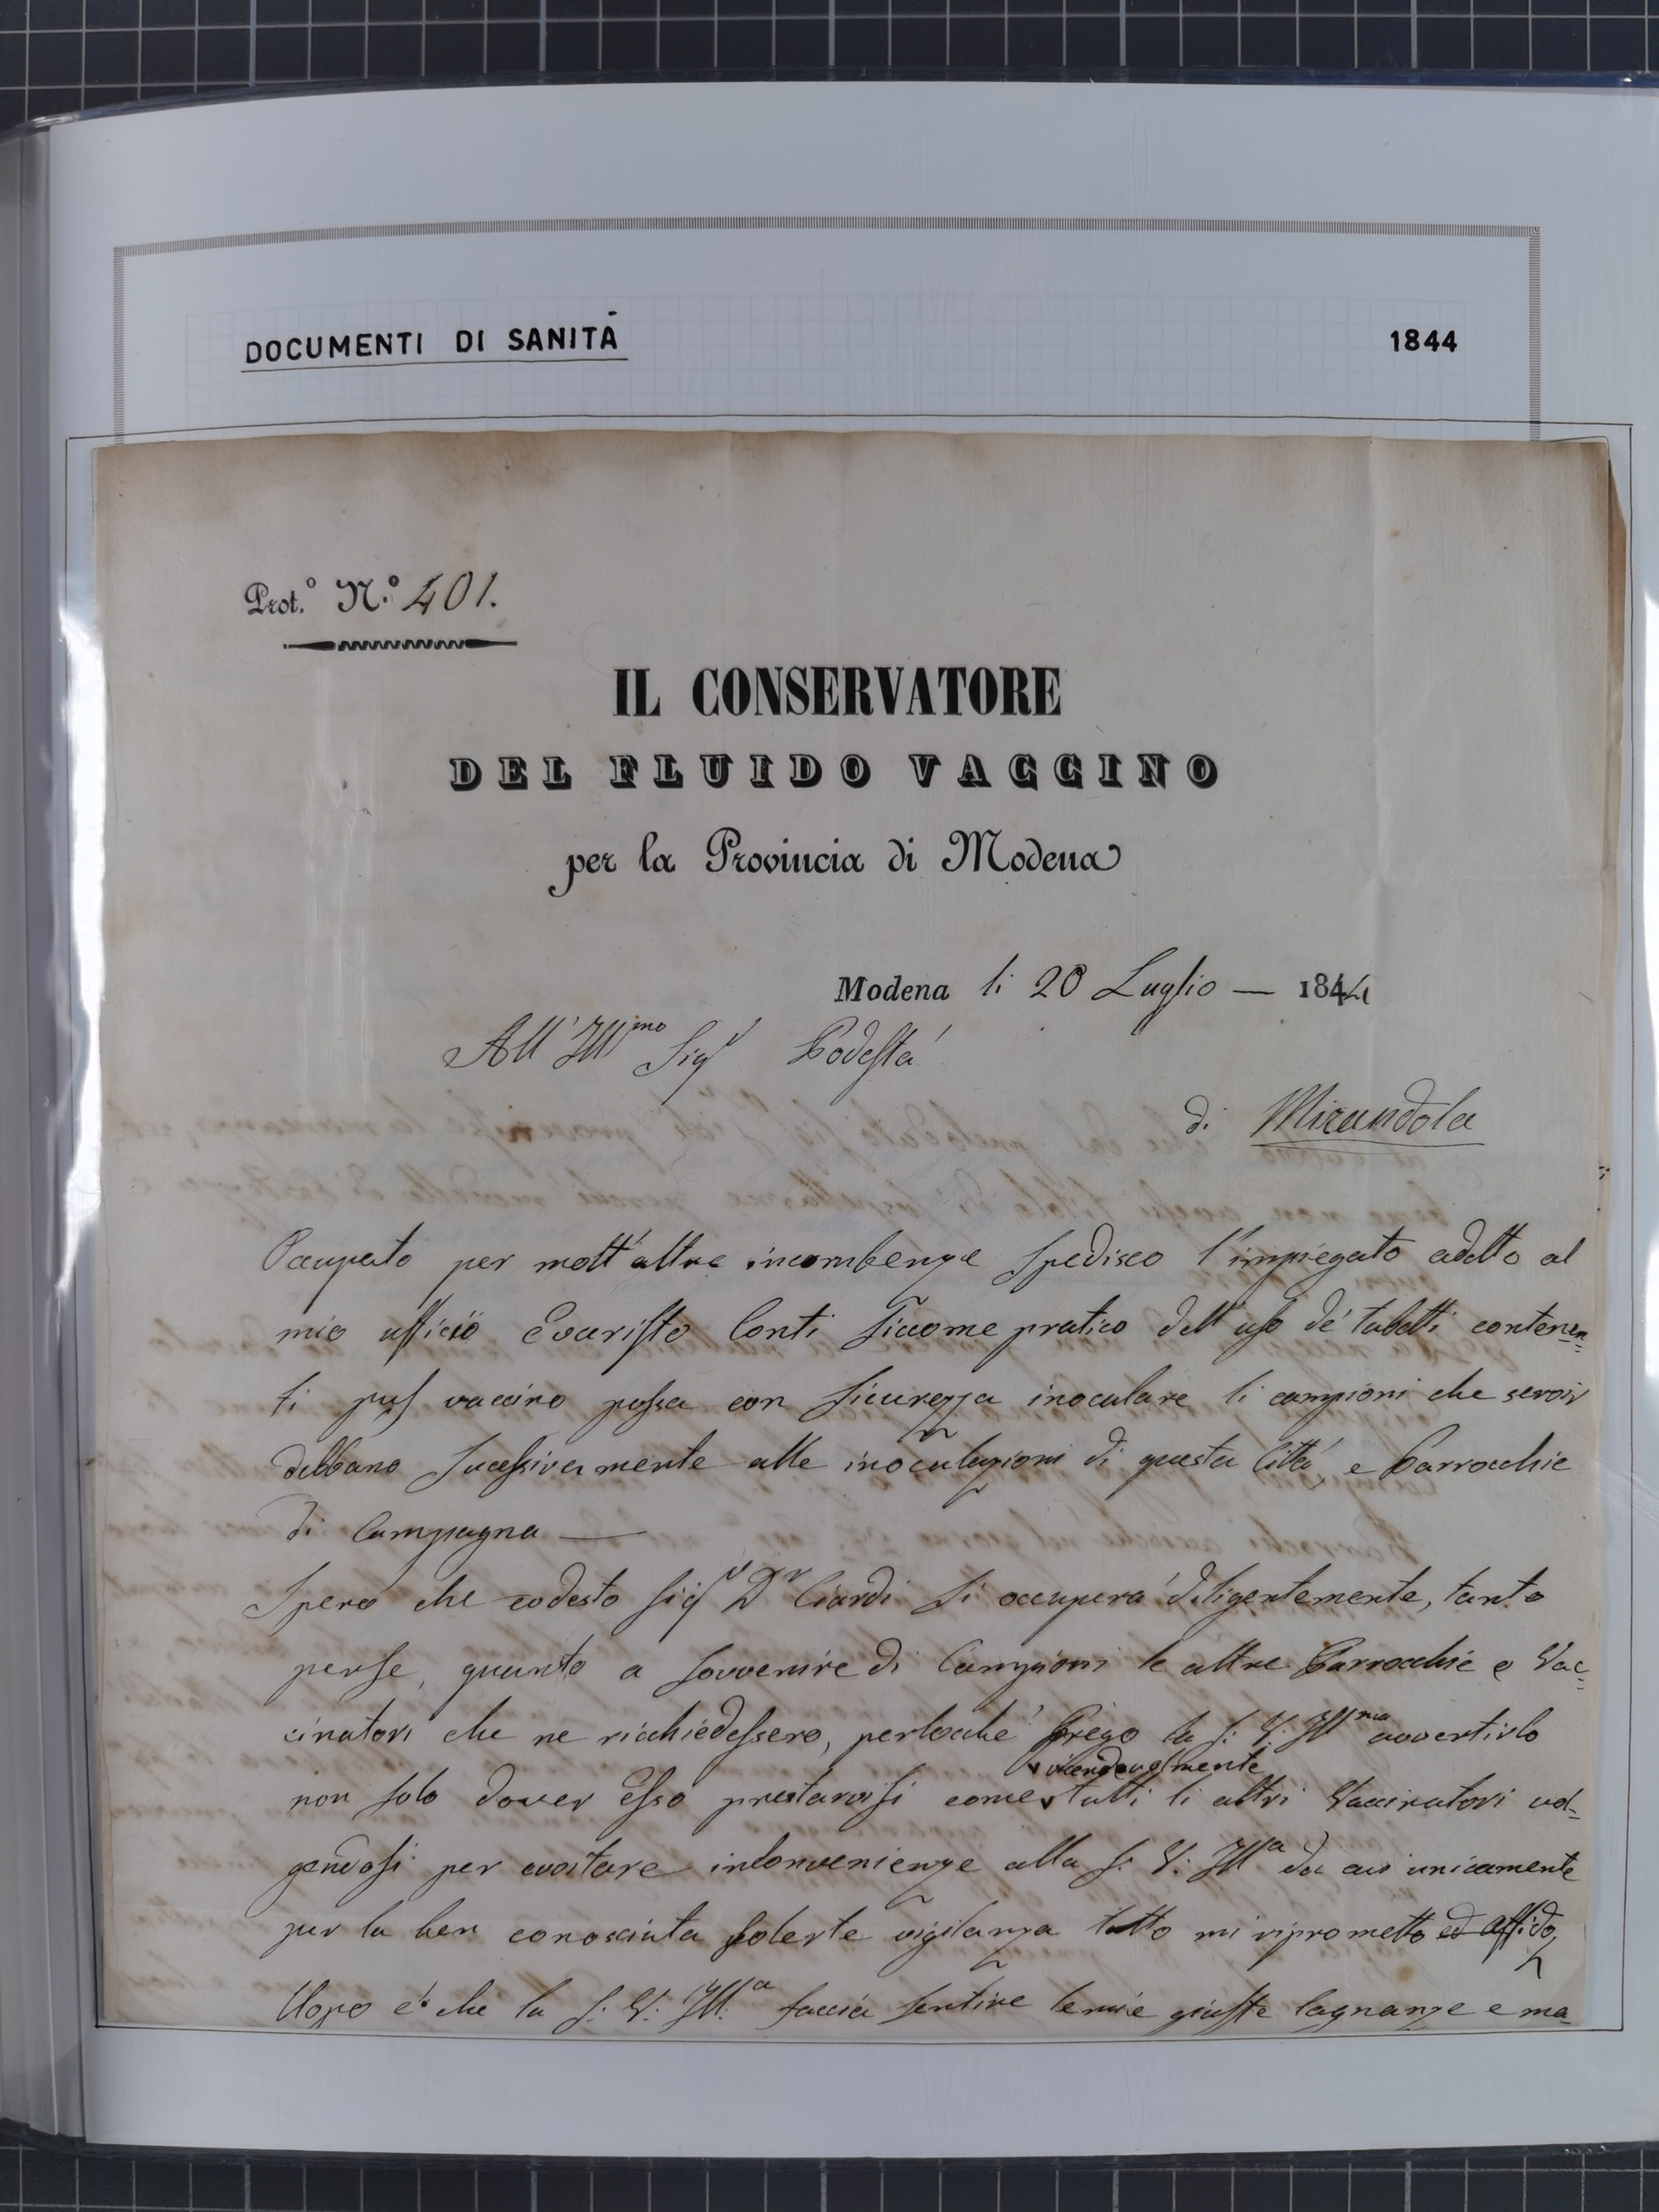 DOCUMENTI DI SANITÀ 1844
Prot.º N.º 401.
IL CONSERVATORE
DEL FLUIDO VACCINO
per la Provincia di Modena
Modena li 20 Luglio — 1844
All' Illmo Sigr Podestà
di Mirandola
Occupato per molt'altre incombenze spedisco l'impiegato adetto al
mio ufficio Evaristo Conti siccome pratico dell'uso de' tubetti contenen=
ti pus vaccino possa con sicurezza inoculare li campioni che servir
debbano sucessivamente alle inoculazioni di questa Città, e Parrocchie
di Campagna —
Spero che codesto Sigr Dr Ciardi si occuperà diligentemente, tanto
perse, quanto a sovvenire di Campioni le altre Parrocchie e Vac=
cinatori che ne richiedessero, perlocchè prego la S. V. Illma avvertirlo
vicendevolmente
non solo dover Esso prestarsi come tutti li altri Vaccinatori vol=
gendosi per evitare inconvenienze alla S. V. Illa da cui unicamente
per la ben conosciuta solerte vigilanza tutto mi riprometto ed affido,
Uopo è che la S. V. Illa faccia sentire le mie giuste lagnanze e ma=